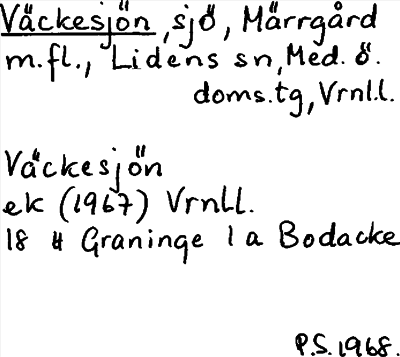 Väckesjön, sjö, Märrgård
m.fl., Lidens sn, Med. ö.
doms.tg, Vrnl.l.
Väckesjön
ek (1967) Vrnl.l.
18 H Graninge 1 a Bodacke
P.S. 1968.